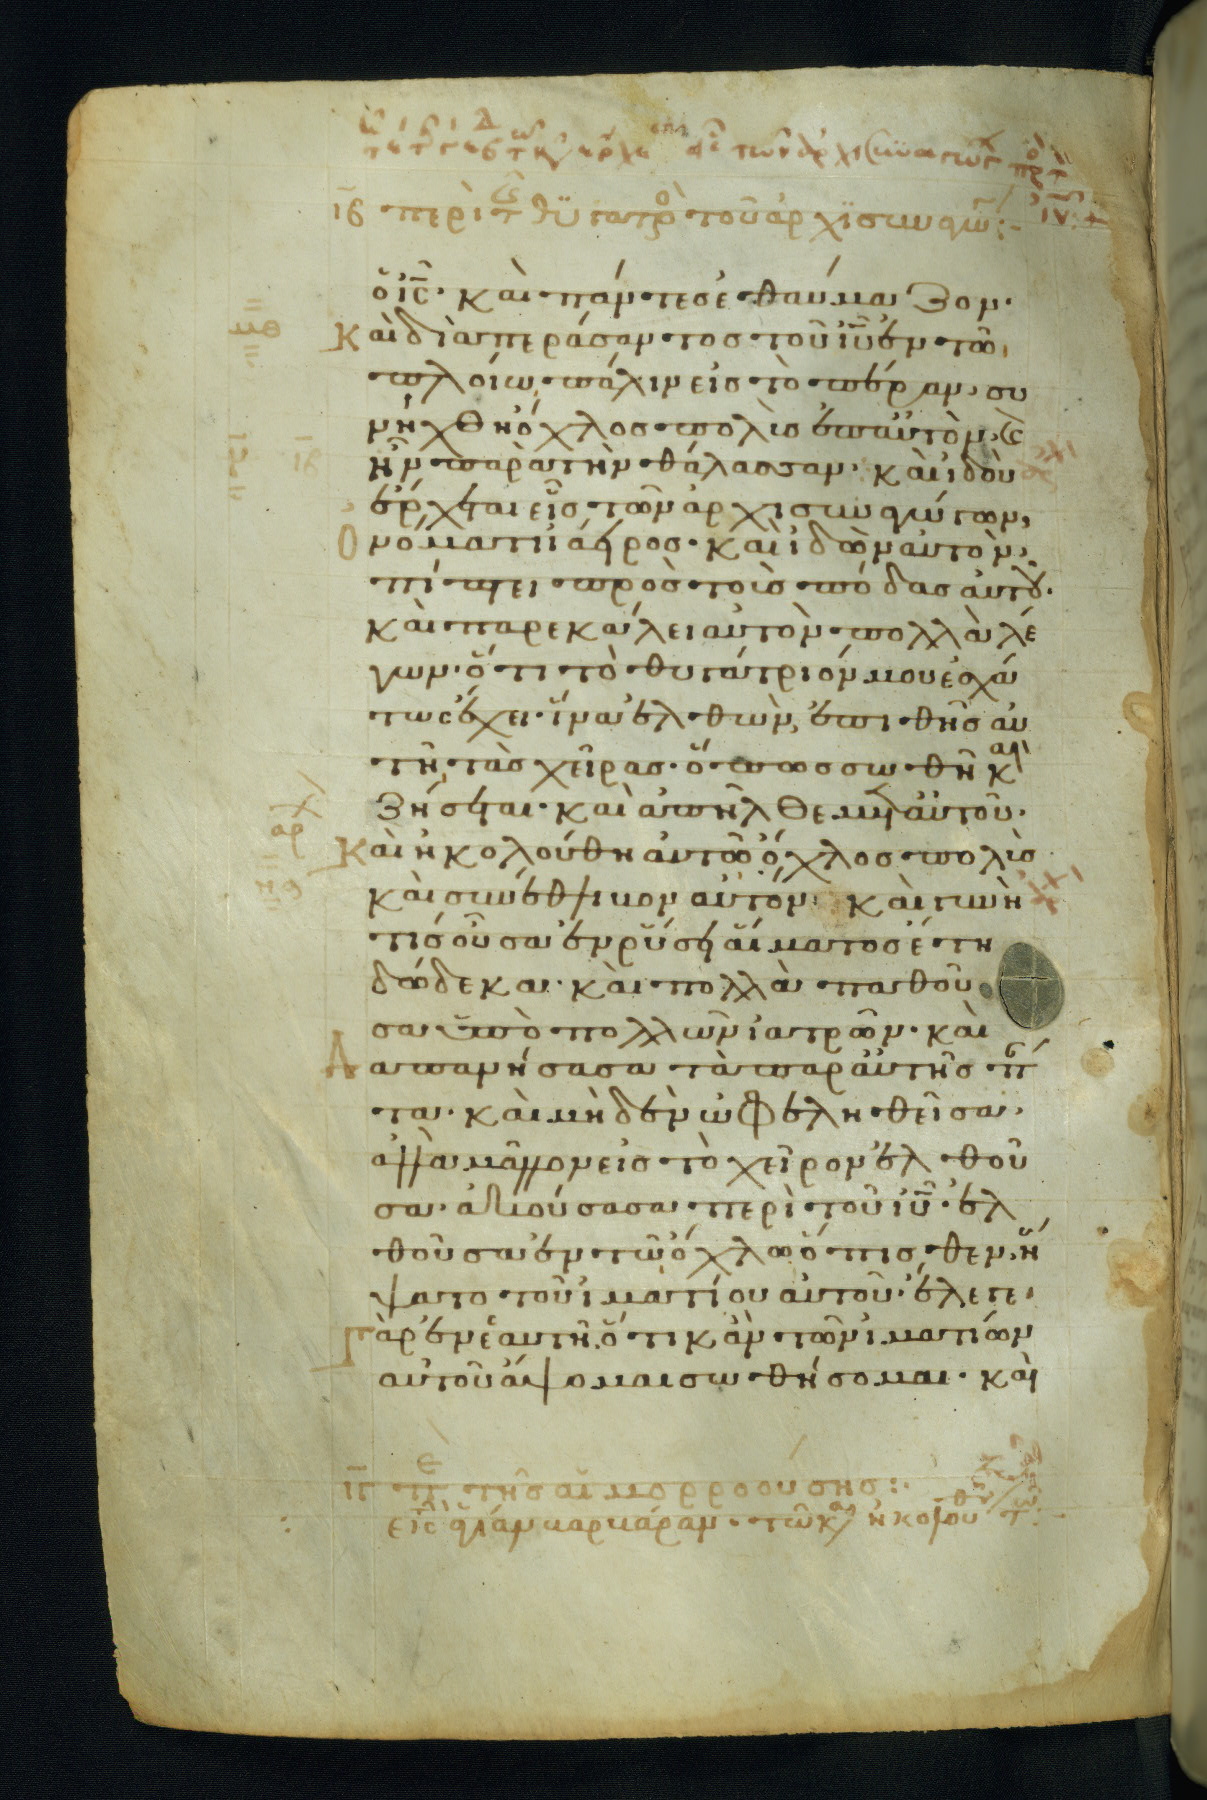 ιβ περὶ τῆς θυγατρὸς τοῦ ἀρχϊσυναγώγ:-
ὁ ις̅. καὶ πάντες ἐθαύμαζον.
Καὶ διαπεράσαντος τοῦ ιυ̅ ἐν τῶ
πλοίω πάλιν εἰς τὸ πέραν, συ
νήχθη ὄχλος πολὺς ἐπ αὐτὸν, καὶ
ἦν παρὰ τὴν θάλασσαν. καὶ ἰδοὺ
ἔρχεται εἷς τῶν ἀρχισυναγώγων,
Ὀνόματι ἰάειρος. καὶ ἰδὼν αὐτὸν,
πίπτει πρὸς τοὺς πόδας αὐτοῦ.
καὶ παρεκάλει αὐτὸν πολλὰ λέ
γων. ὅτι τὸ θυγάτριόν μου ἐσχά
τως ἔχει. ἵνα ἐλθὼν, ἐπιθῆς αὐ
τῆ τὰς χεῖρας. ὅπως σωθῆ καὶ
Ζήσεται. καὶ ἀπῆλθε μετ αὐτοῦ.
Καὶ ἠκολούθη αὐτῶ ὄχλος πολὺς
καὶ συνέθλιβον αὐτόν. καὶ γυνή
τις οὖσα ἐν ῥύσει αἵματος ἔτη
δώδεκα. καὶ πολλὰ παθοῦ
σα ὑπὸ πολλῶν ἰατρῶν. καὶ
Δαπανήσασα τὰ παρ αὐτῆς πάν
τα. καὶ μηδὲν ὠφεληθεῖσα.
ἀλλὰ μᾶλλον εἰς τὸ χεῖρον ἐλθοῦ
σα. ἀκούσασα περὶ τοῦ ιυ̅. ἐλ
θοῦσα ἐν τῶ ὄχλω ὄπισθεν, ἥ
ψατο τοῦ ἱματίου αὐτοῦ. ἔλεγε
Γὰρ ἐν ἑαυτῆ. ὅτι κἂν τῶν ἱματίων
αὐτοῦ ἅψομαι σωθήσομαι. καὶ
ιγ περὶ τῆς αἱμορροούσης:.
εἰς τὴν ἁγίαν βαρβάραν. τῶ καιρῶ ἠκολούθει τῶ
μθ
ιβ
αρχ